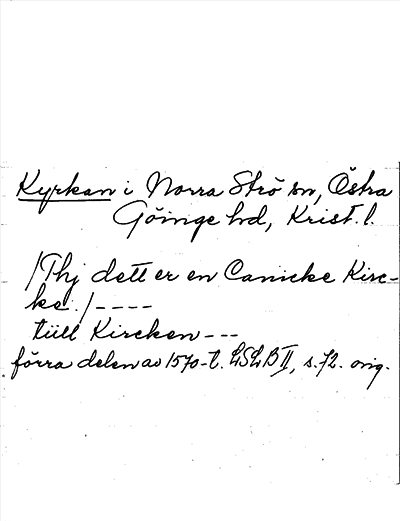 Kyrkan i Norra Strö sn, Östra
Göinge hd, Krist. l.
/Thj dett er en Canicke Kirc-
ke./----
tüll Kircken---
förra delen av 1570-t. LSLB II, s. 72. orig.